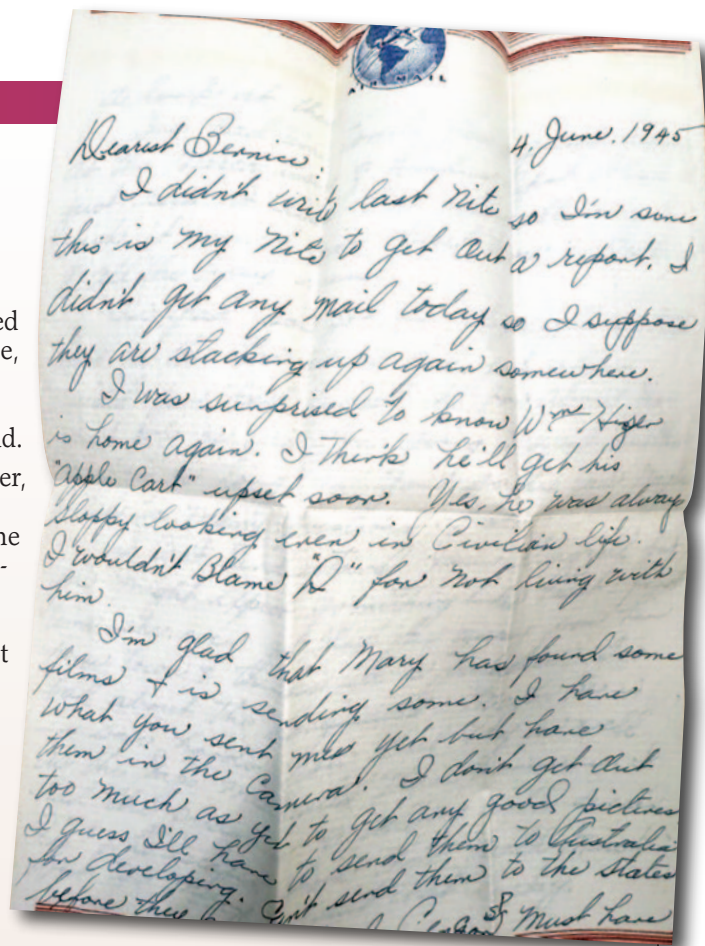 AIR MAIL
4, June, 1945
Dearest Bernice:
I didn't write last Nite so I'm sure
this is my Nite to get out a report. I
didn't get any mail today so I suppose
they are stacking up again somewhere.
I was surprised to know Wm Hizer
is home again. I think he'll get his
"Apple Cart" upset soon. Yes, he was always
sloppy looking even in Civilian life.
I wouldn't Blame "D" for not living with
him.
I'm glad that Mary has found some
films & is sending some. I have
what you sent me yet but have
them in the Camera. I don't get out
too much as yet to get any good pictures
I guess I'll have to send them to Australia
for developing. Can't send them to the States
before they
Must have
ed
e,
d.
er,
ne
-
t